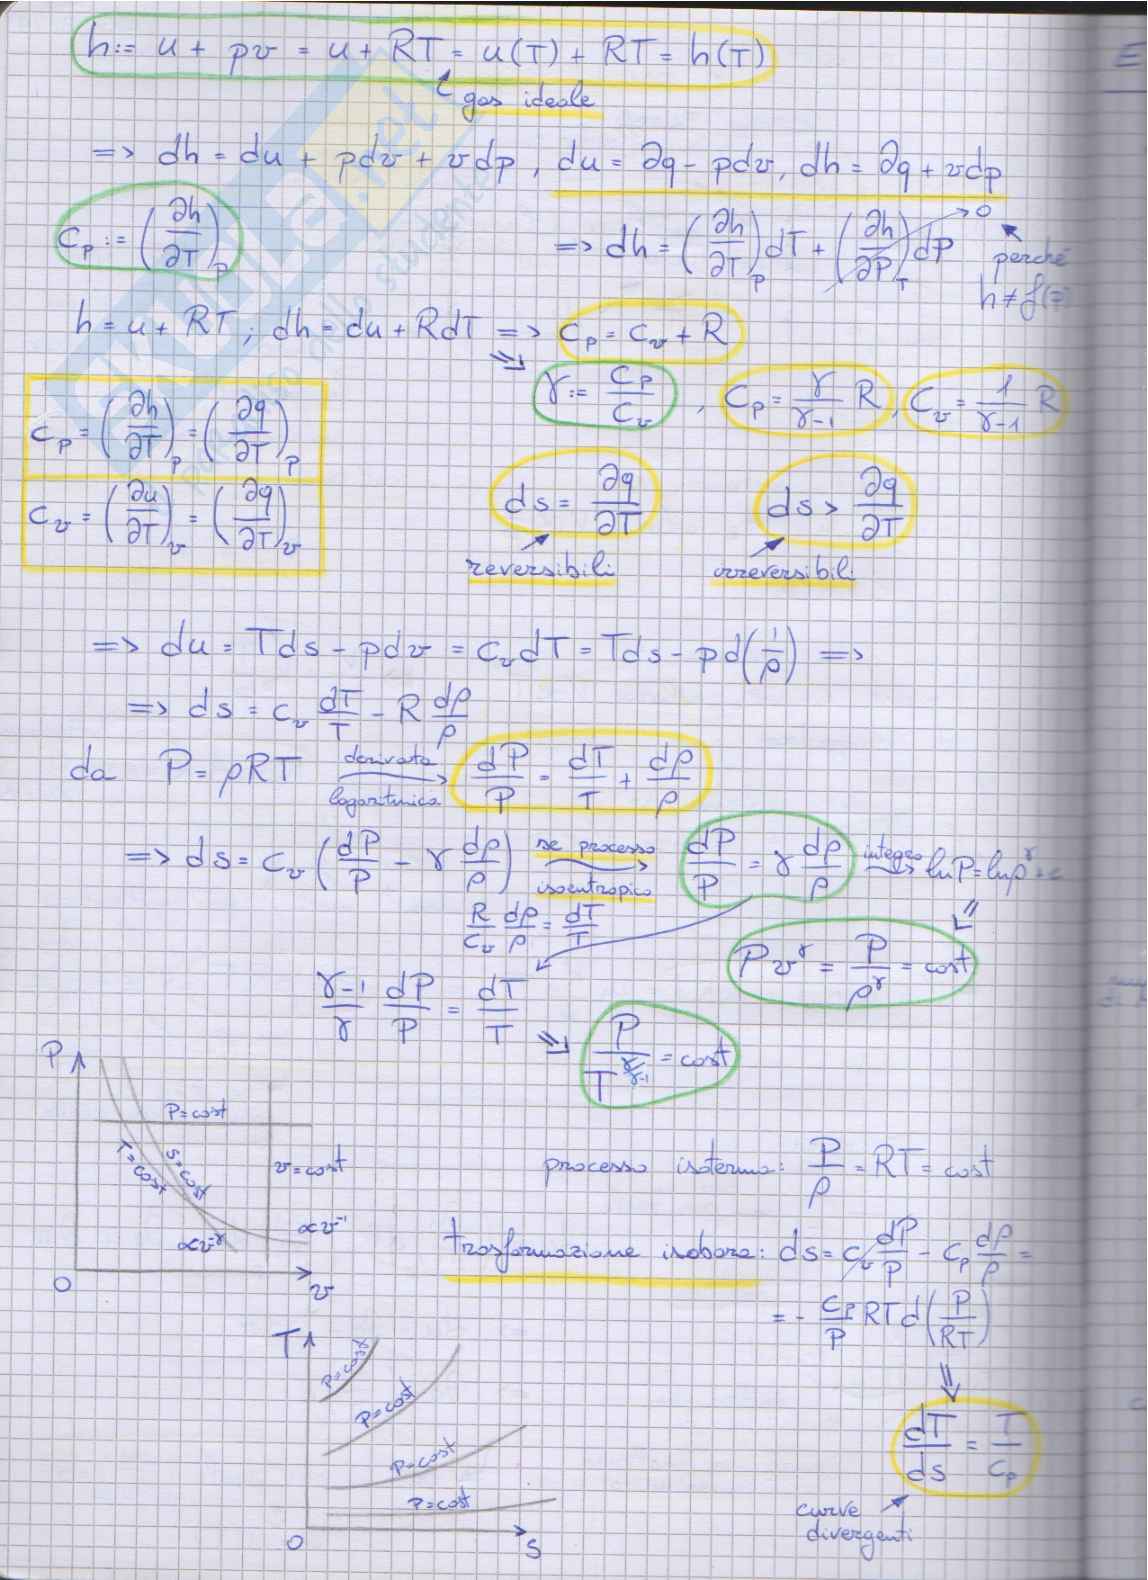 h := u + pv = u + RT = u(T) + RT = h(T)
gas ideale
=> dh = du + pdv + vdp , du = ∂q - pdv, dh = ∂q + vdp
Cp := (∂h/∂T)p => dh = (∂h/∂T)p dT + (∂h/∂P)T dP → 0
perché
h ≠ f(
h = u + RT ; dh = du + RdT => Cp = Cv + R
γ := Cp/Cv , Cp = γ/(γ-1) R , Cv = 1/(γ-1) R
Cp = (∂h/∂T)p = (∂q/∂T)p
Cv = (∂u/∂T)v = (∂q/∂T)v
ds = ∂q/∂T ds > ∂q/∂T
reversibili irreversibili
=> du = Tds - pdv = CvdT = Tds - pd(1/ρ) =>
=> ds = Cv dT/T - R dρ/ρ
da P = ρRT derivata logaritmica → dP/P = dT/T + dρ/ρ
=> ds = Cv (dP/P - γ dρ/ρ) se processo isoentropico → dP/P = γ dρ/ρ integro → lnP = lnρ^γ +
R/Cv dρ/ρ = dT/T
Pv^γ = P/ρ^γ = cost
(γ-1)/γ dP/P = dT/T
P/T^(γ/(γ-1)) = cost
P
P=cost
T=cost
S=cost
v=cost
∝v^-γ
∝v^-1
O
v
processo isotermo: P/ρ = RT = cost
trasformazione isobara: ds = Cv dP/P - Cp dρ/ρ =
= - Cp/P RT d(P/RT)
T
P=cost
P=cost
P=cost
P=cost
O
S
dT/ds = T/Cp
curve
divergenti